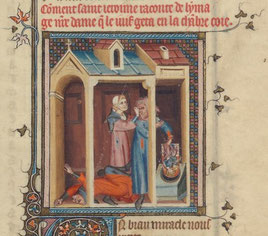 Cōment saint ieroime raconte de lyma
ge nrē dame q̄ le iuif geta en la chābre coie.
biau miracle nous